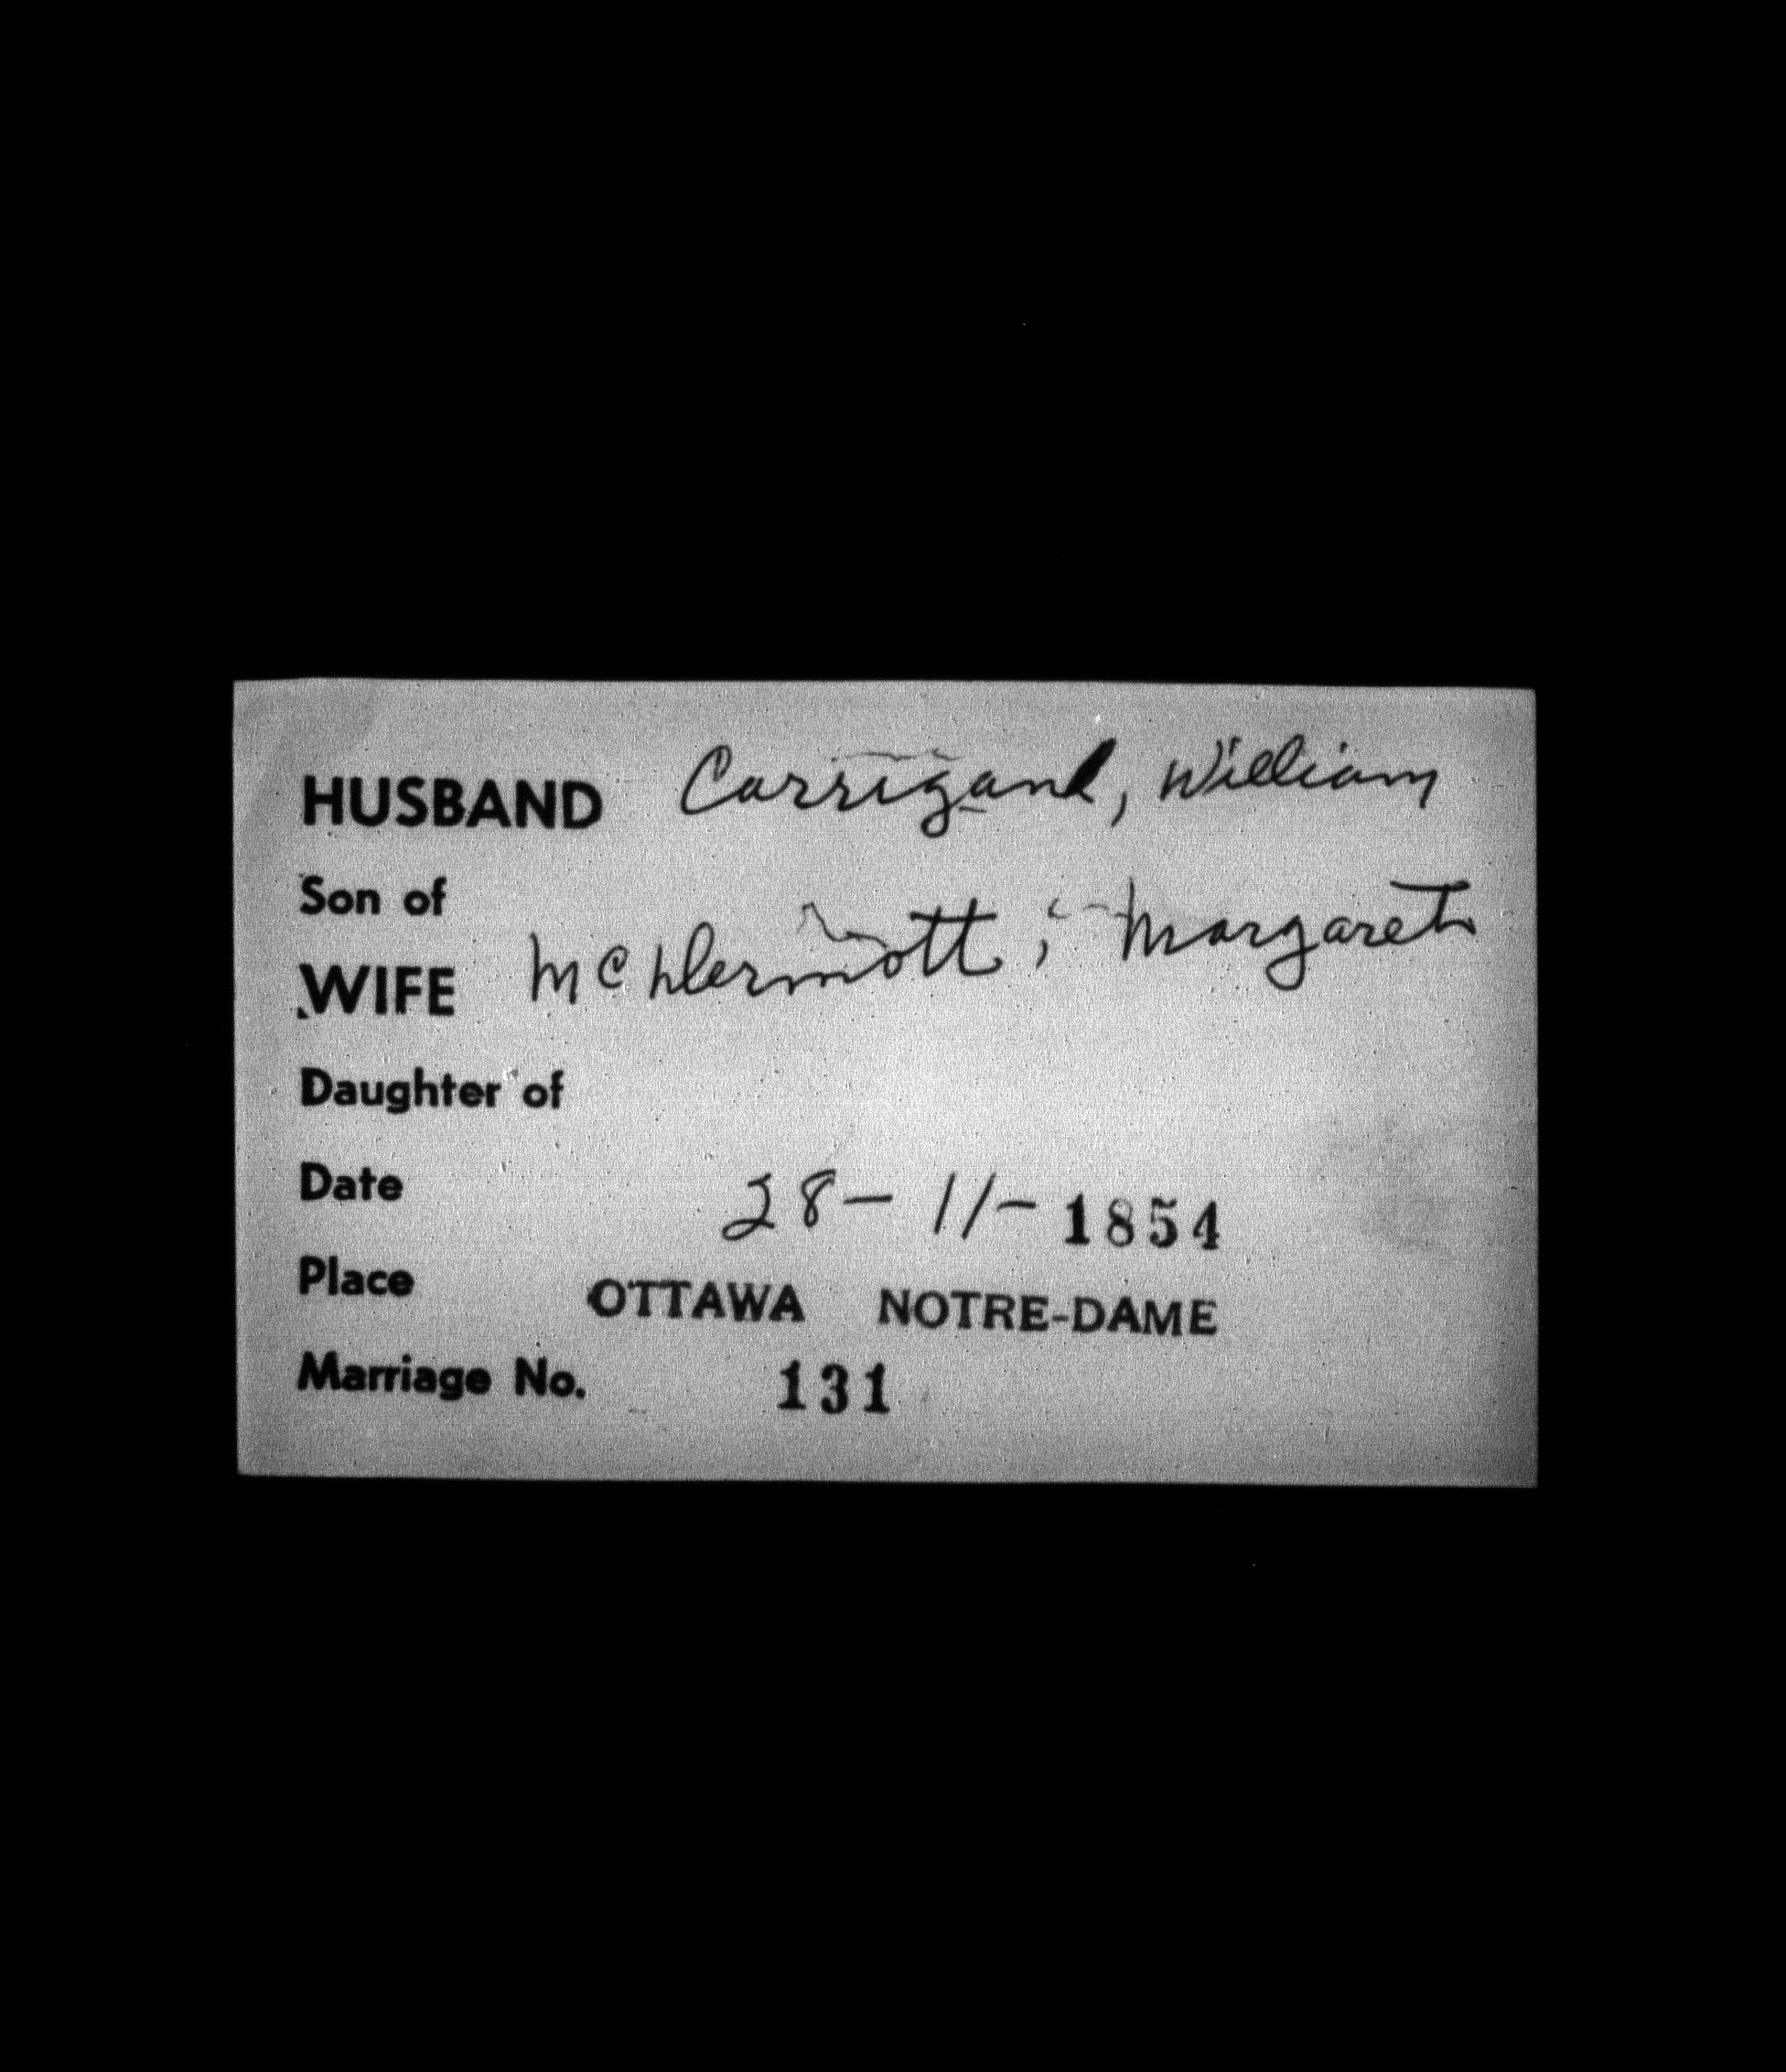 HUSBAND Carrigand, William
Son of
WIFE McDermott, Margaret
Daughter of
Date 28-11-1854
Place OTTAWA NOTRE-DAME
Marriage No. 131